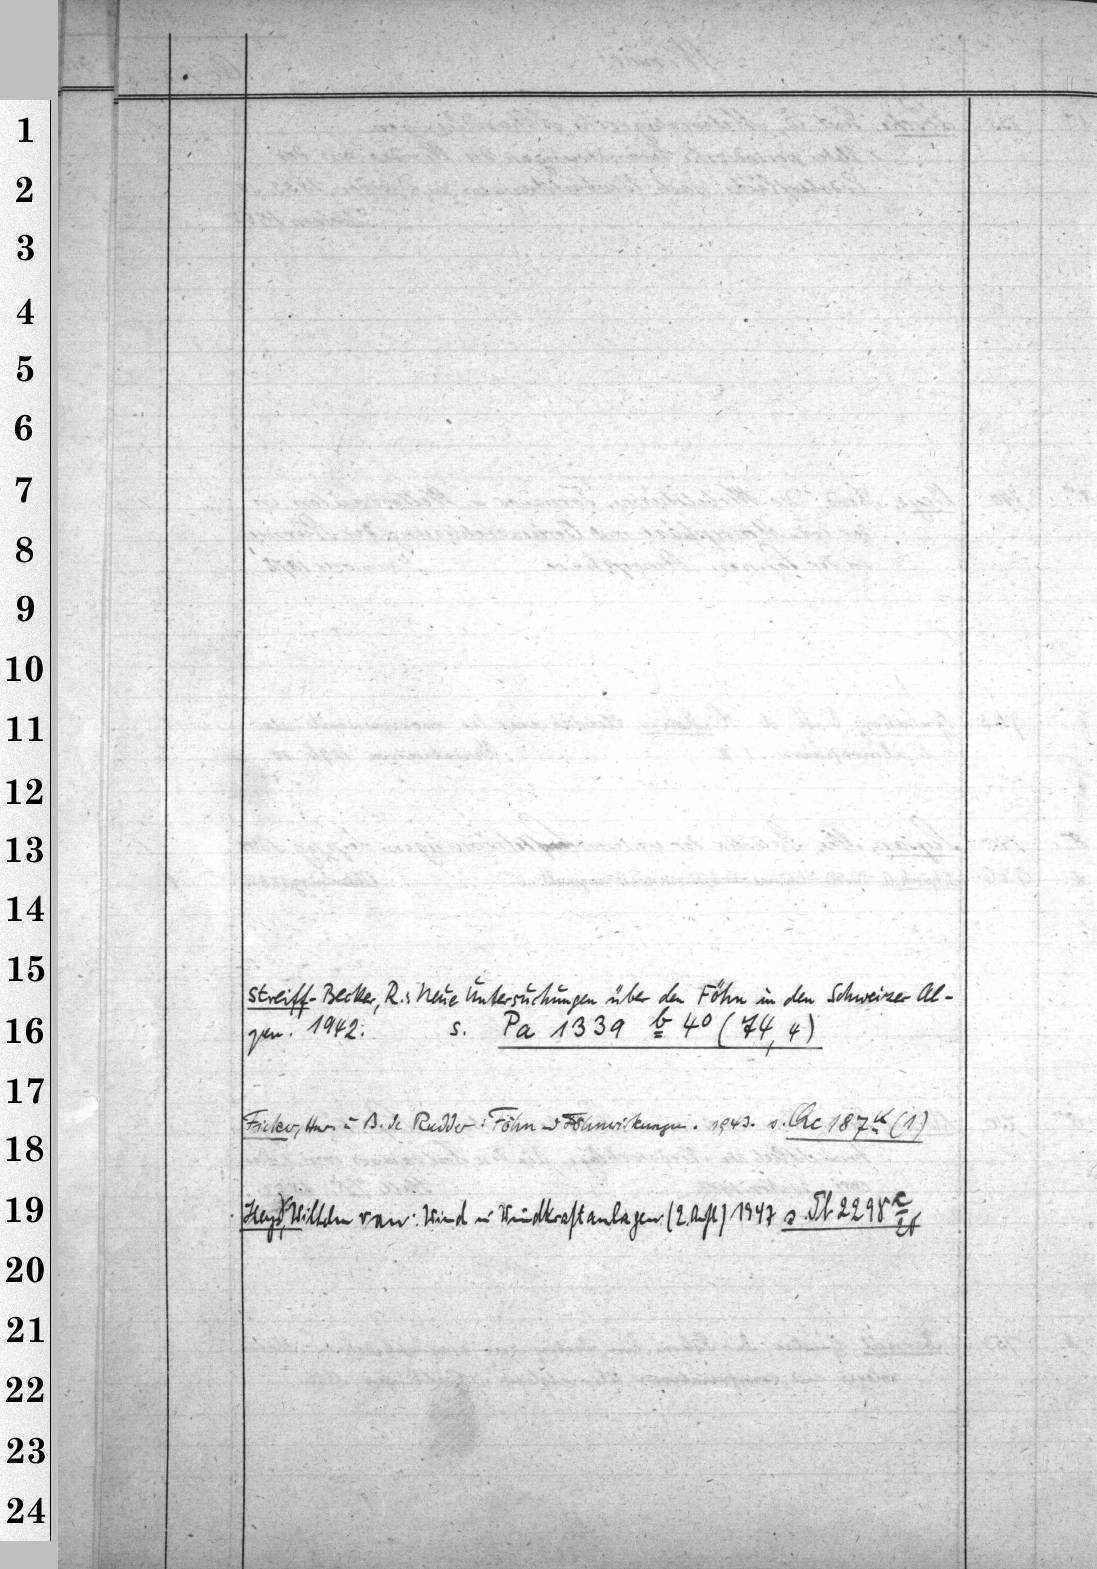 1
2
3
4
5
6
7
8
9
10
11
12
13
14
15
Streiff-Becker, R.: Neue Untersuchungen über den Föhn in den Schweizer Al-
16
pen. 1942. s. Pa 1339 b 40 (74, 4)
17
Ficker, u. B. de Rudder: Föhn u Föhnwirkungen. 1943. s. 187 k (1)
18
19
Heys, Wilhelm van: Wind u Windkraftanlagen (2. Aufl) 1947 s. 2298
20
21
22
23
24